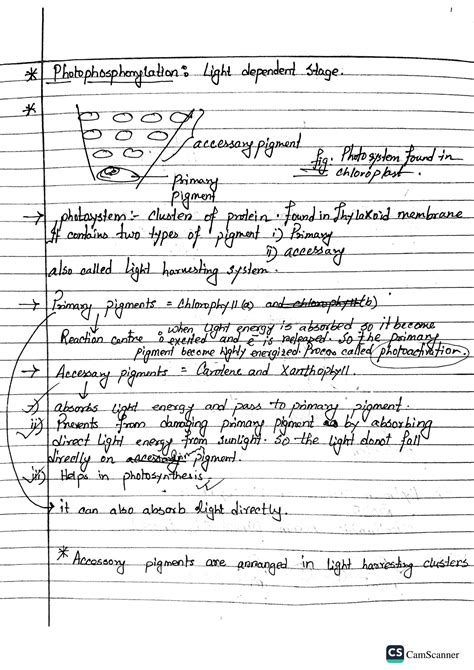 * Photophosphorylation: Light dependent stage.
*
accessary pigment
Primary
pigment
fig: Photosystem found in
chloroplast.
→ photosystem:- cluster of protein. found in thylakoid membrane
It contains two types of pigment i) Primary
ii) accessary
also called light harvesting system.
→ Primary pigments = Chlorophyll (a) and chlorophyll (b)
Reaction centre : when light energy is absorbed so it become
excited and e⁻ is released. So the primary
pigment become highly energized. Proces called photoactivation.
→ Accessary pigments = Carotene and Xanthophyll.
i) absorbs light energy and pass to primary pigment.
ii) Prevents from damaging primary pigment by absorbing
direct light energy from sunlight. So the light donot fall
directly on accessary pigment.
iii) Helps in photosynthesis
→ it can also absorb light directly.
* Accessory pigments are arranged in light harvesting clusters
CS CamScanner